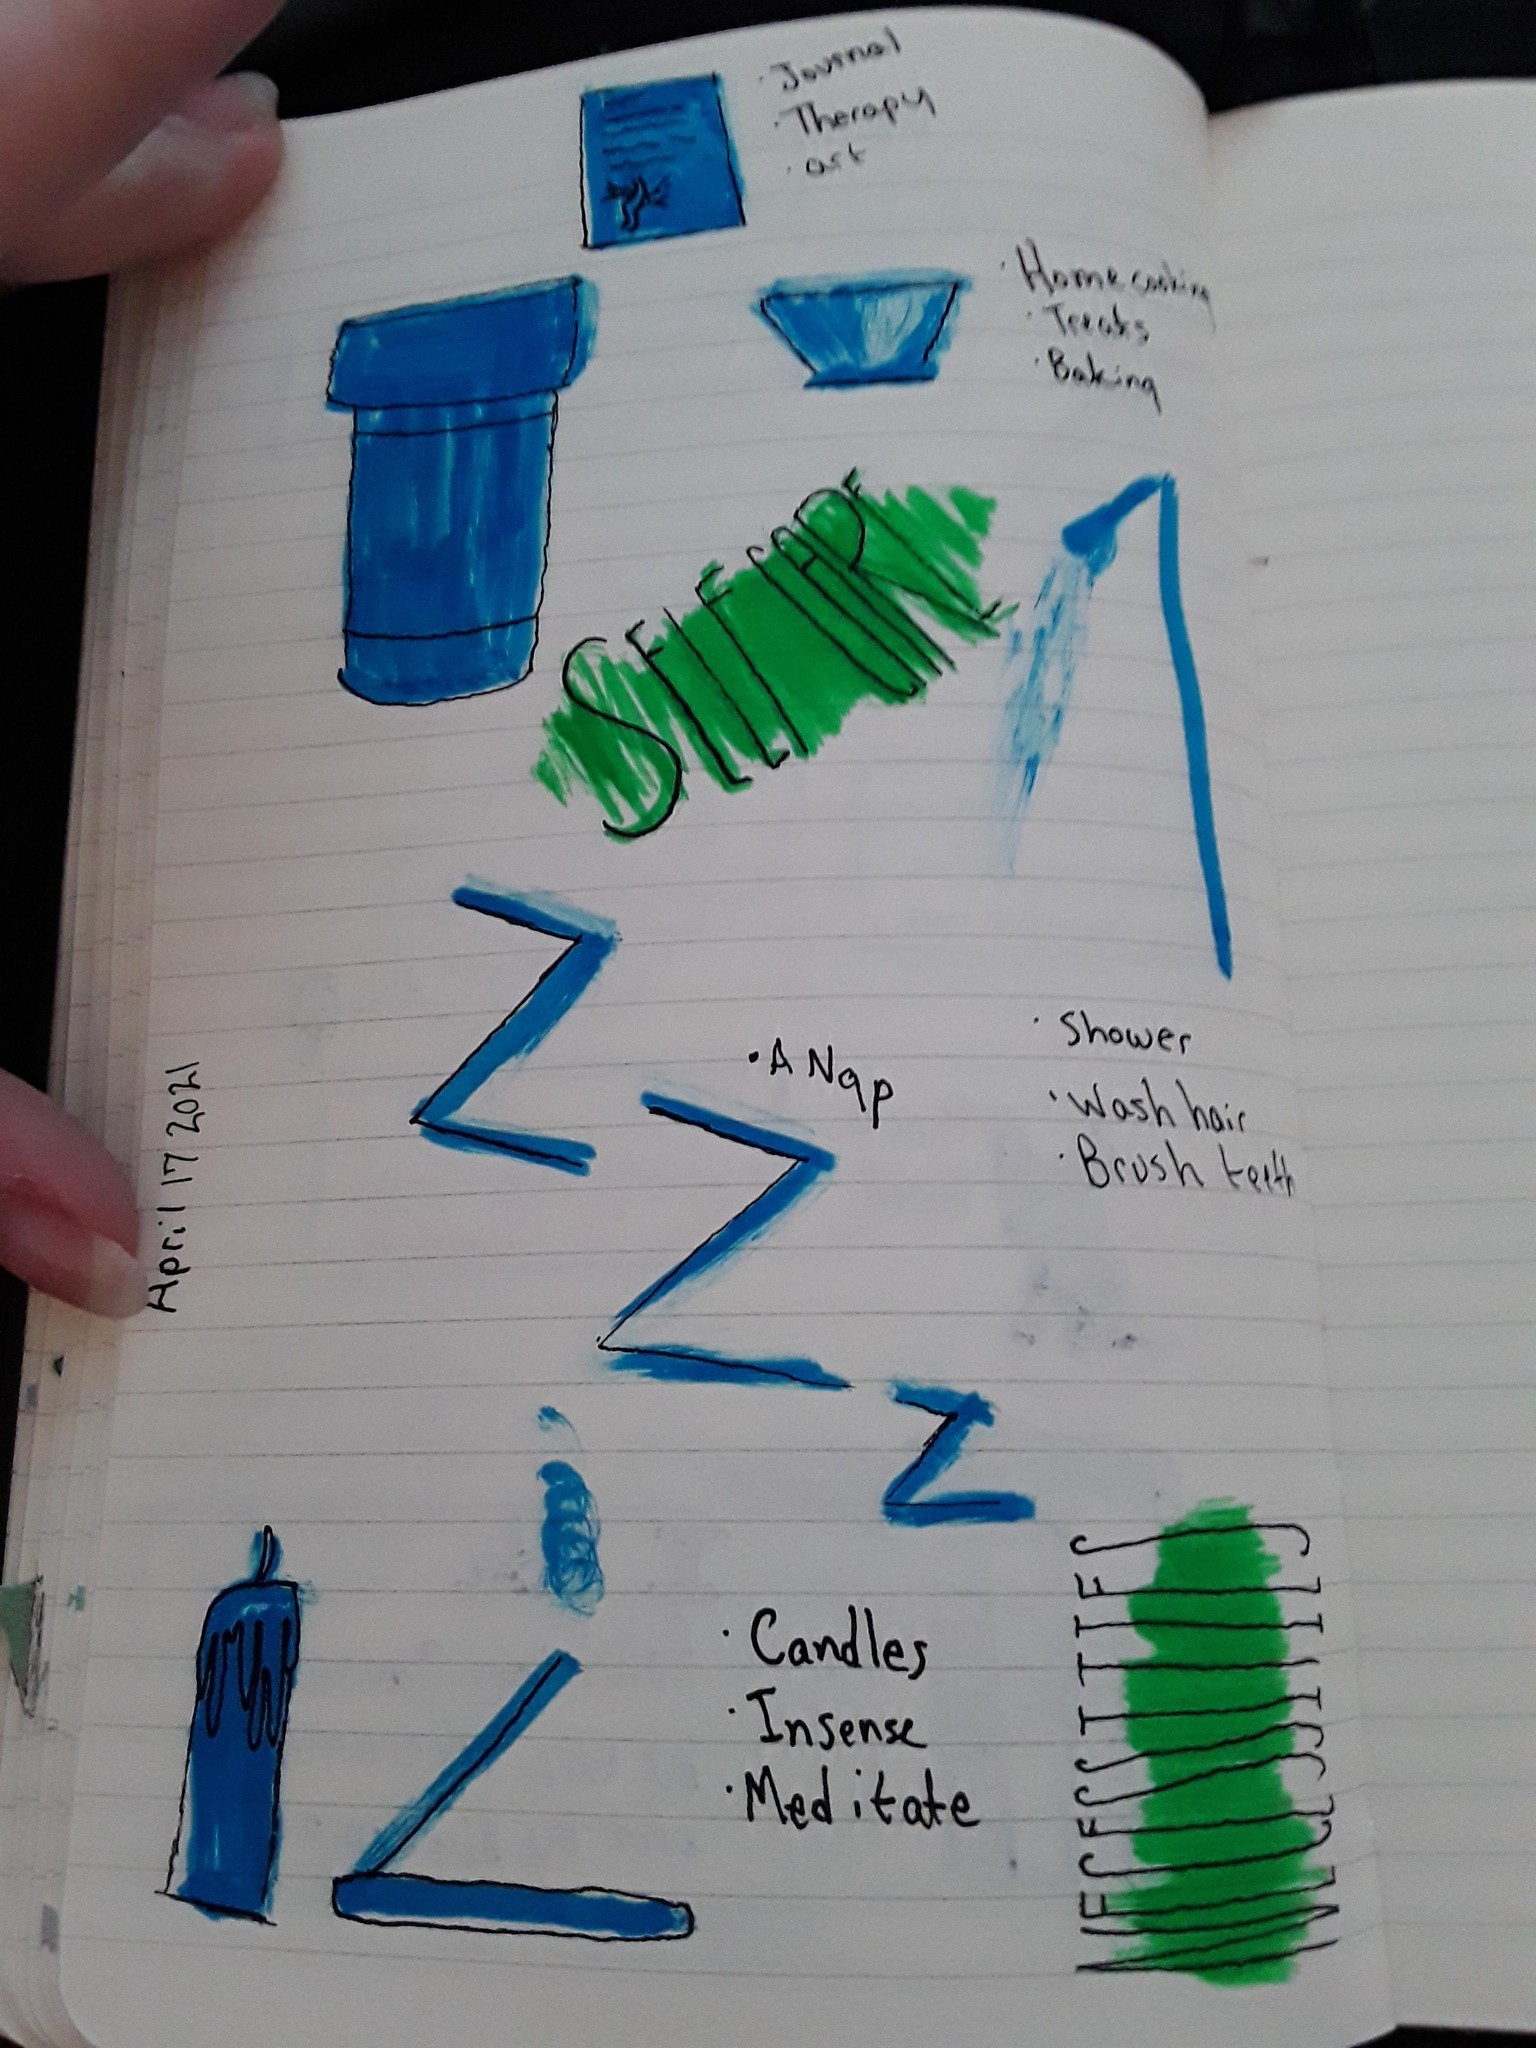 · Journal
· Therapy
· art
· Home cooking
· Treats
· Baking
SELF CARE
· A Nap
· Shower
· Wash hair
· Brush teeth
April 17 2021
· Candles
· Insense
· Meditate
NECESSITIES
Z
Z
Z